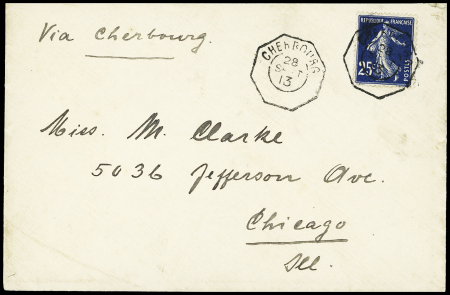 Via Cherbourg.
CHERBOURG
28
SEPT
13
REPUBLIQUE FRANÇAISE
25c
POSTES
Miss. M. Clarke
5036 Jefferson Ave.
Chicago
Ill.